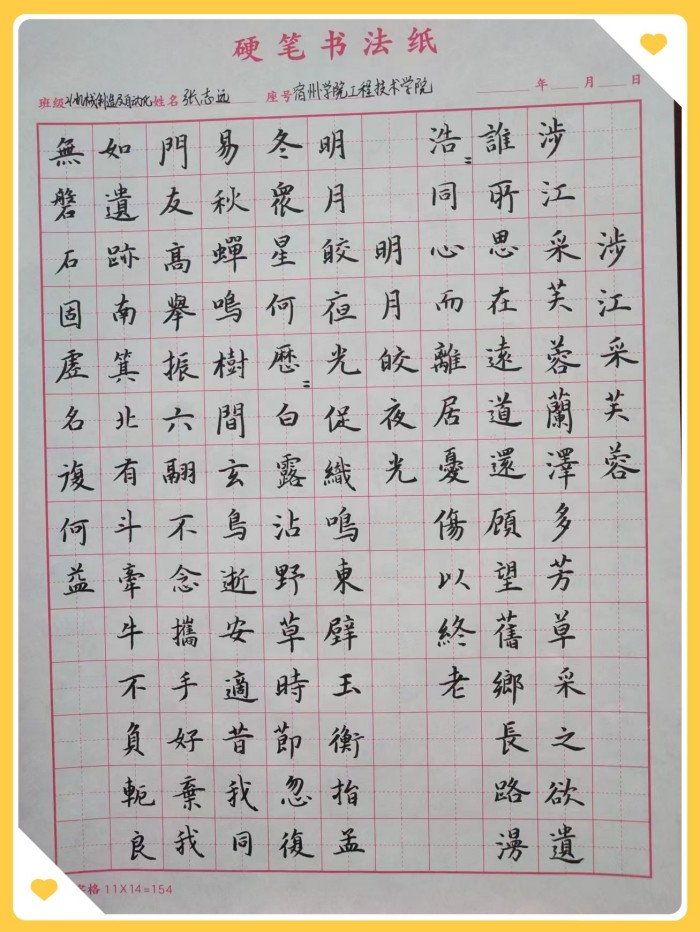 硬笔书法纸
班级 21机械制造及自动化 姓名 张志远 座号 宿州学院工程技术学院 年 月 日
涉江采芙蓉
涉江采芙蓉蘭澤多芳草采之欲遺
誰所思在遠道還顧望舊鄉長路漫
浩〻同心而離居憂傷以終老
明月皎夜光
明月皎夜光促織鳴東壁玉衡指孟
冬眾星何歷〻白露沾野草時節忽復
易秋蟬鳴樹間玄鳥逝安適昔我同
門友高舉振六翮不念攜手好棄我
如遺跡南箕北有斗牽牛不負軛良
無磐石固虛名復何益
格 11X14=154